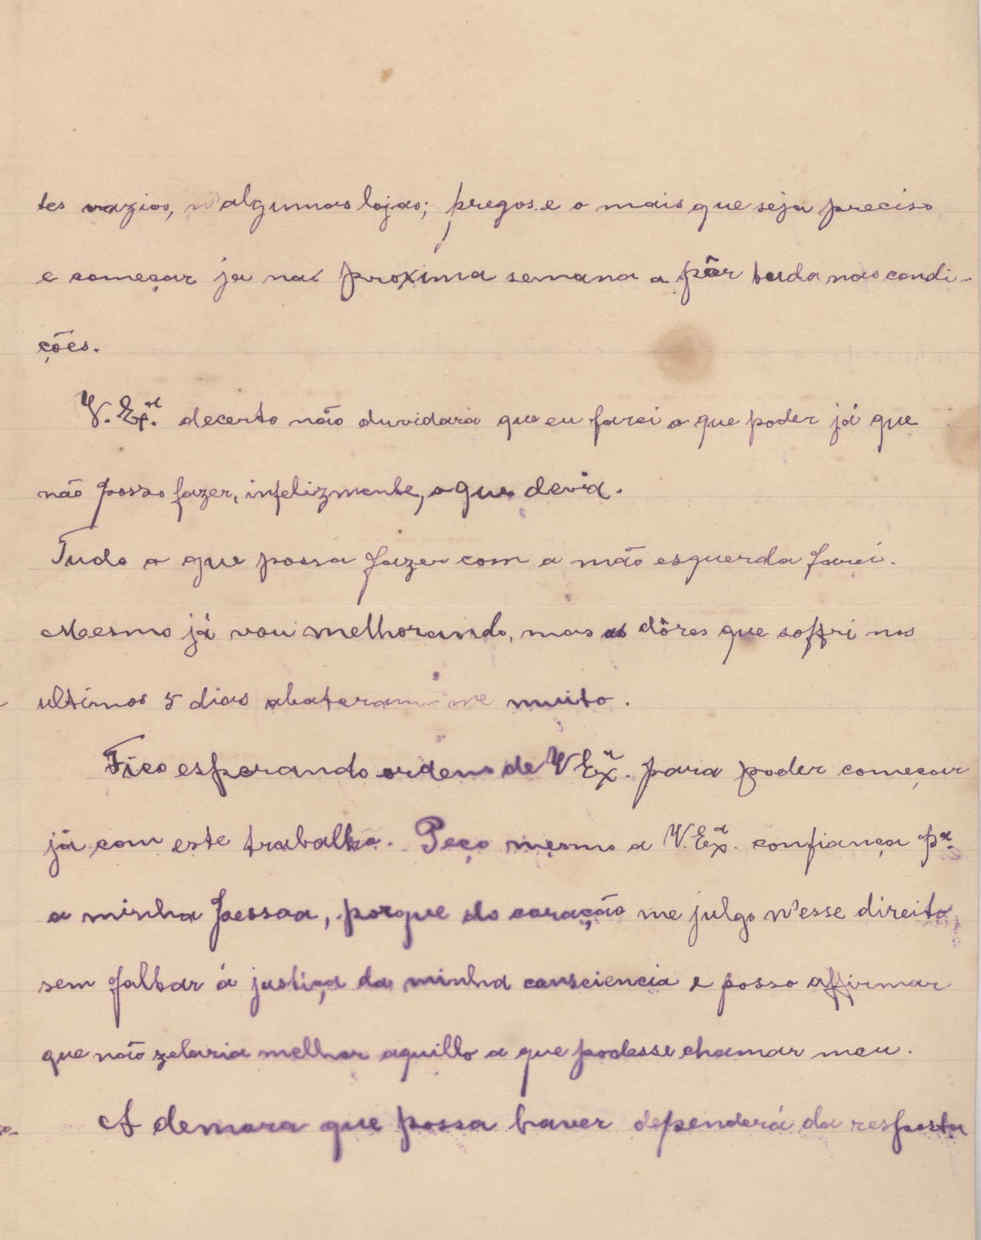 tes vazios, n'algumas lojas; pregos e o mais que seja preciso
e começar ja na proxima semana a pôr tudo nas condi-
ções.
V. Exª. decerto não duvidará que eu farei o que poder já que
não posso fazer, infelizmente, o que devia.
Tudo o que possa fazer com a mão esquerda farei.
Mesmo já vou melhorando, mas as dôres que soffri nos
ultimos 5 dias abateram-me muito.
Fico esperando ordens de V Exª. para poder começar
já com este trabalho. Peço mesmo a V. Exª. confiança pª.
a minha pessoa, porque do coração me julgo n'esse direito
sem faltar á justiça da minha consciencia e posso affirmar
que não zelaria melhor aquillo a que podesse chamar meu.
A demora que possa haver dependerá da resposta